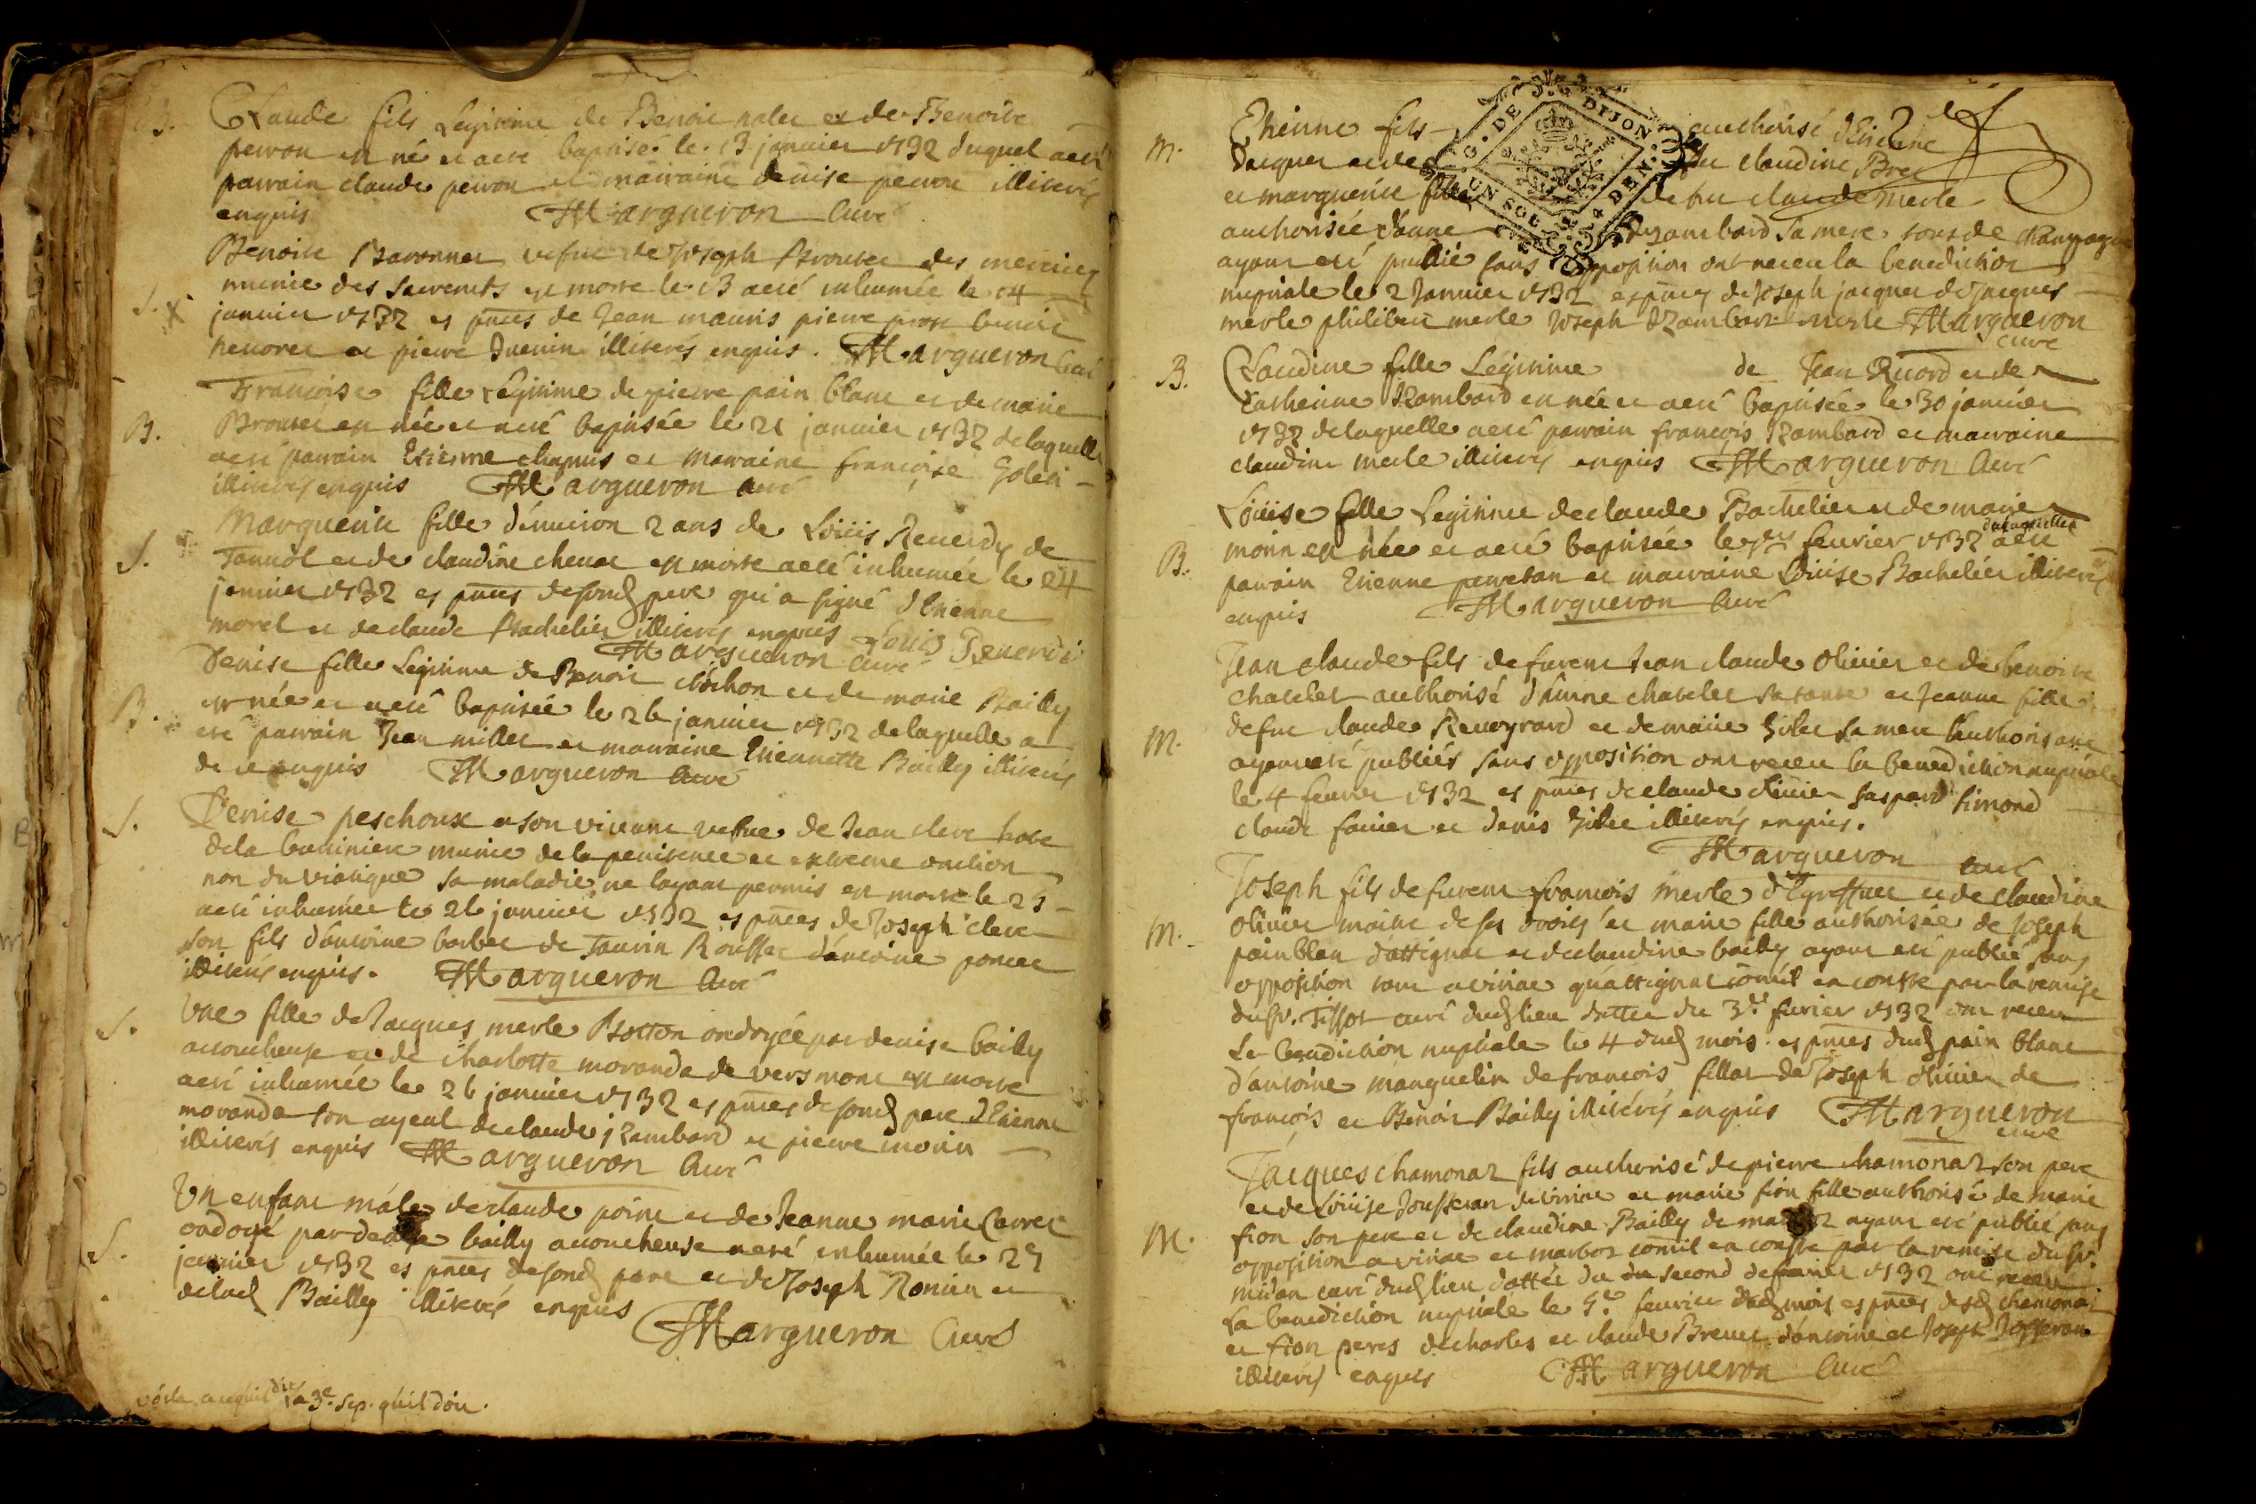 B. Claude fils Legitime de Benoit nalet et de Benoite
perron est né et a eté baptisé le 13 janvier 1732 duquel a eté
parrain claude perron et marraine denise perron illiterés
enquis Margueron Curé
Benoite Baronnet vefve de Joseph Brouter des mercieres
munie des sacrements est morte le 13 a eté inhumée le 14
S. janvier 1732 es pñces de Jean mauris pierre benoit
henoret et pierre Guenin illiterés enquis. Margueron Curé
Francoise fille Legitime de pierre pain blanc et de marie
B. Brouter est née et a eté baptisée le 21 janvier 1732 de laquelle
a eté parrain Etienne chapuis et maraine francoise Goleti
illiterés enquis Margueron curé
Marguerite fille d'environ 2 ans de Loüis Reverdy de
S. Tannot et de claudine chenat est morte a eté inhumée le 24
janvier 1732 es pñces de sond pere qui a signé d'Etienne
morel et de claude Bachelier illiterés enquis Louis Reverdi
Margueron Curé
Denise fille Legitime de Benoit clochon et de marie Bailly
B. est née et a eté baptisée le 26 janvier 1732 de laquelle a
eté parrain Jean millet et maraine Etiennette Bailly illiterés
de ce enquis Margueron Curé
S. Denise peschoux a son vivant vefve de Jean clerc
de la munie de la penitence et extreme onction
non du viatique sa maladie ne layant permis est morte le 25
a eté inhumée le 26 janvier 1732 es pñces de Joseph clerc
son fils d'antoine barbet de Taurin Rousset d'antoine poncet
illiterés enquis. Margueron Curé
S. Une fille de Jacques merle Botton ondoyée par denise bailly
acoucheuse et de Charlotte morand de vers mont est morte
a eté inhumée le 26 janvier 1732 es pñces de sond pere d'Etienne
morand son ayeul de claude jambard et pierre monin
illiterés enquis Margueron Curé
Un enfant mâle de claude poine et de Jeanne marie Carret
ondoyé par denise bailly acoucheuse a eté inhumée le 27
S. janvier 1732 es pñces de sond pere et de Joseph Ronin et
de lad Bailly illiterés enquis
Margueron Curé
3e sep. quil doit.
G. DE DIJON
UN SOL 4 DEN.
Etienne fils authorisé d'Etienne
M. Jacquet et de claudine Bret
et marguerite fille de feu claude merle
authorisée d'anne Jambard sa mere tous de
ayant eté publié sans opposition ont receu la benediction
nuptiale le 2 Janvier 1732 es pñces de Joseph jacquet de Jacques
merle philibert merle Joseph Jambard merle Margueron
curé
B. Claudine fille Légitime de Jean Ruord et de
Catherine Jambard est née et a eté baptisée le 30 janvier
1732 de laquelle a eté parrain francois Jambard et marraine
claudine merle illiterés enquis Margueron Curé
Loüise fille Legitime de claude Bachelier et de marie
B. monin est née et a eté baptisée le fevrier 1732 de laquelle a eté
parain Etienne perretan et marraine Loüise Bachelier illiterés
enquis Margueron Curé
Jean claude fils de furent Jean claude olivier et de benoite
chatelet authorisé d'anne chatelet sa tante et Jeanne fille
M. de feu claude Reveyrard et de marie Gilet sa mere l'authorisant
ayant eté publiés sans opposition ont receu la benediction nuptiale
le 4 fevrier 1732 es pñces de claude olivier gaspard simond
claude favier et denis Gilet illiterés enquis.
Margueron Curé
Joseph fils de furent francois merle et de claudine
M. olivier maitre de ses droits et marie fille authorisée de Joseph
painblan dattignat et de claudine bailly ayant eté publié sans
opposition tant a viriat qu'attignat comme il en conste par la remise
du Sr. Tissot curé dud lieu dattée du 3e fevrier 1732 ont receu
la benediction nuptiale le 4 dud mois es pñces dud pain blanc
d'antoine manguelin de francois fillat de Joseph olivier de
francois et Benoit Bailly illitérés enquis Margueron
curé
Jacques chamonat fils authorisé de pierre chamonat son pere
et de Loüise Jousseran de viriat et marie fion fille authorisé de marie
M. fion son pere et de claudine Bailly de ayant eté publié sans
opposition a viriat et marboz comme il en conste par la remise du Sr.
midan curé dud lieu dattée du du second de fevrier 1732 ont receu
la benediction nuptiale le 5e fevrier dud mois es pñces desd chamonat
et fion peres de charles et claude Brevet d'antoine et Joseph Josseran
illiterés enquis Margueron Curé